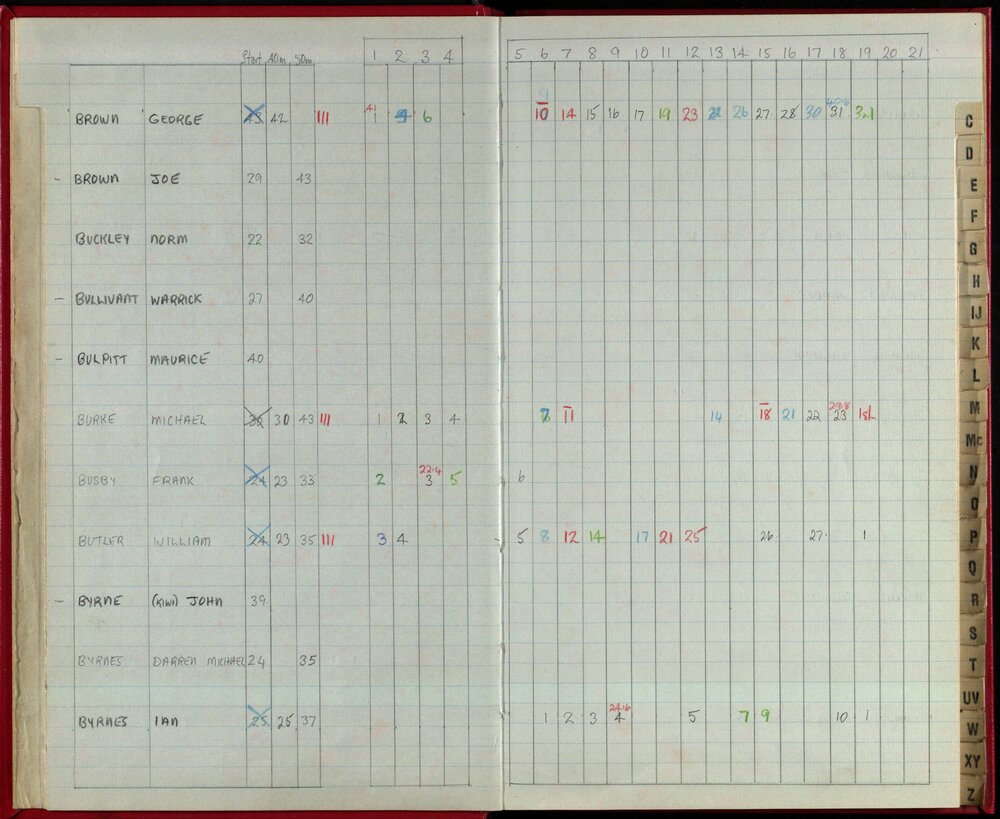 Start 40m 50m 1 2 3 4 5 6 7 8 9 10 11 12 13 14 15 16 17 18 19 20 21
9
BROWN GEORGE 43 42 III 41 1 6 10 14 15 16 17 19 23 26 27 28 30 31
- BROWN JOE 29 43
BUCKLEY NORM 22 32
- BULLIVANT WARRICK 27 40
- BULPITT MAURICE 40
BURKE MICHAEL 30 43 III 1 2 3 4 11 14 18 21 22 29.8 23
BUSBY FRANK 24 23 33 2 22.4 3 5 6
BUTLER WILLIAM 24 23 35 III 3 4 5 8 12 14 17 21 25 26 27 1
- BYRNE (KIWI) JOHN 39
BYRNES DARREN MICHAEL 24 35
BYRNES IAN 25 25 37 1 2 3 24.6 4 5 7 9 10 1
C
D
E
F
G
H
IJ
K
L
M
Mc
N
O
P
Q
R
S
T
UV
W
XY
Z